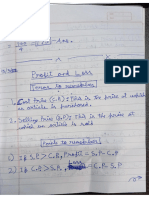 Profit and Loss
Terms to remember
1. Cost Price (C.P): This is the price at which
an article is purchased.
2) Selling Price (S.P): This is the price at
which an article is sold.
Facts to remember
1) If S.P > C.P, Profit = S.P - C.P
2) If S.P < C.P, = C.P - S.P